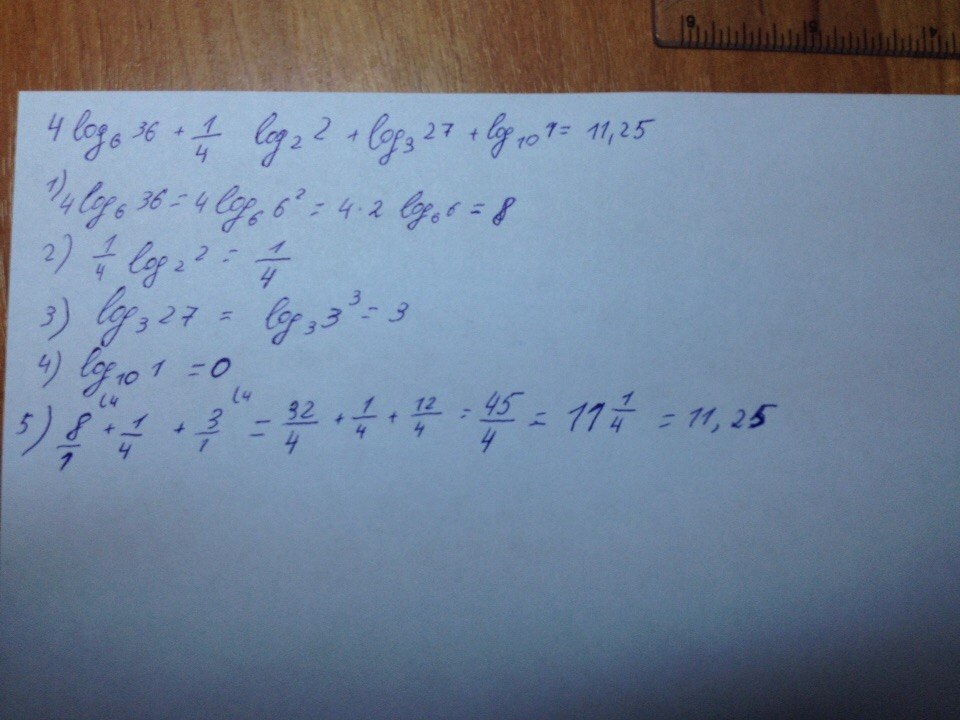 6 5 4
4 log₆ 36 + 1/4 log₂ 2 + log₃ 27 + log₁₀ 1 = 11,25
1) 4 log₆ 36 = 4 log₆ 6² = 4 · 2 log₆ 6 = 8
2) 1/4 log₂ 2 = 1/4
3) log₃ 27 = log₃ 3³ = 3
4) log₁₀ 1 = 0
5) 8/1 (4 + 1/4 + 3/1 (4 = 32/4 + 1/4 + 12/4 = 45/4 = 11 1/4 = 11,25